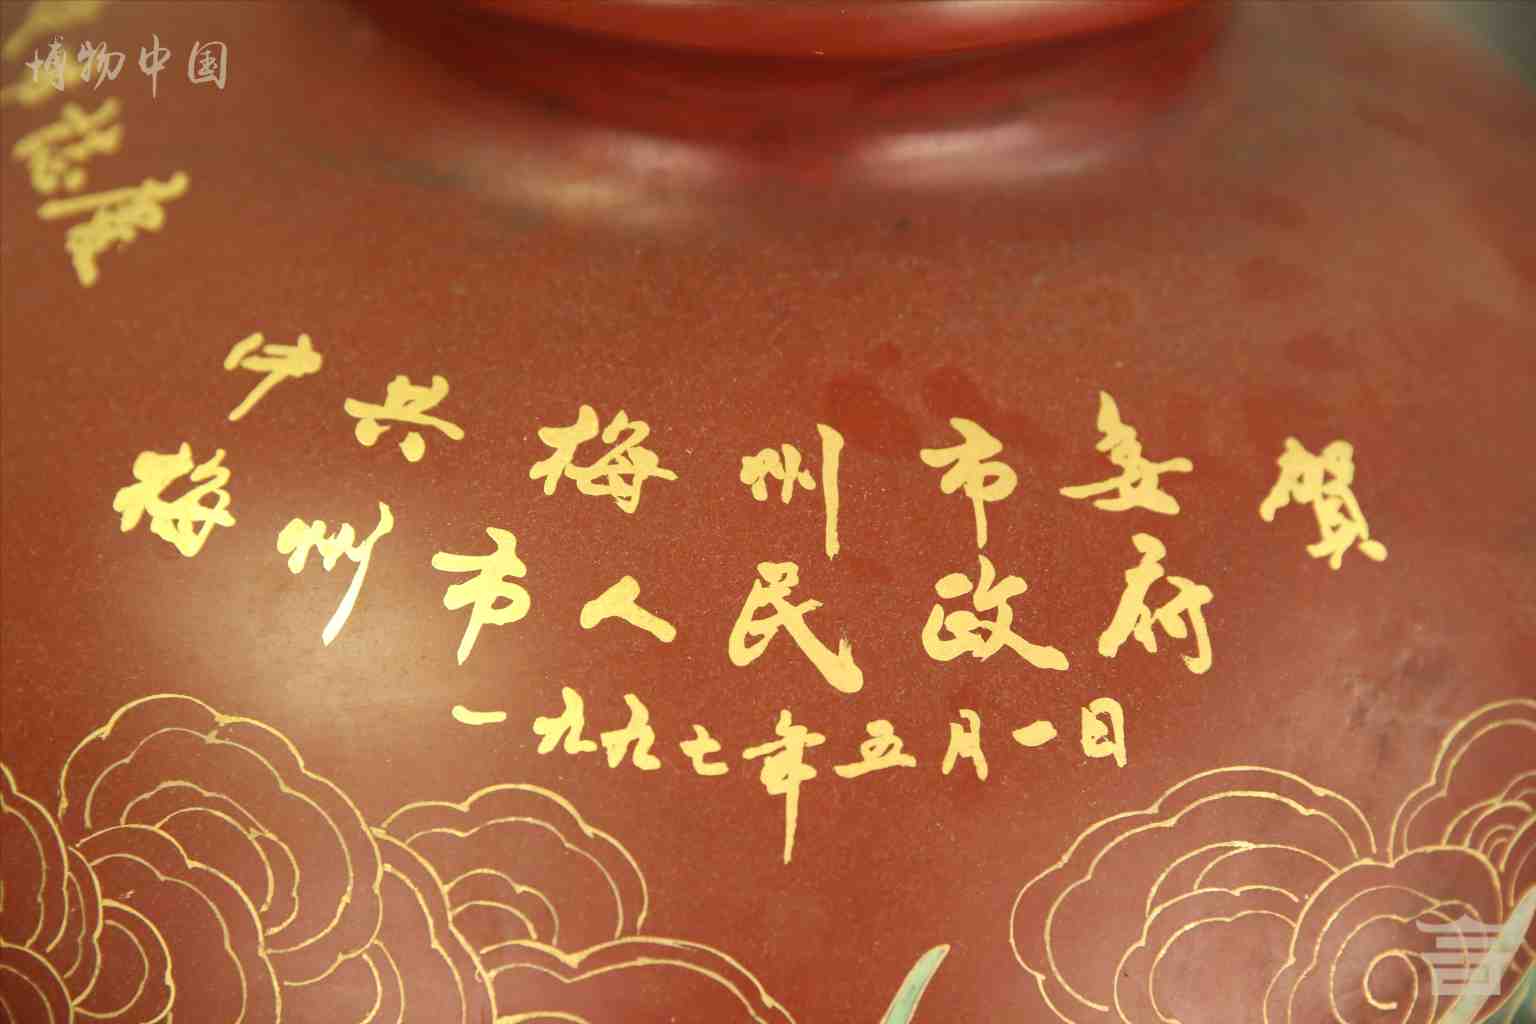 博物中国
中共梅州市委 賀
梅州市人民政府
一九九七年五月一日